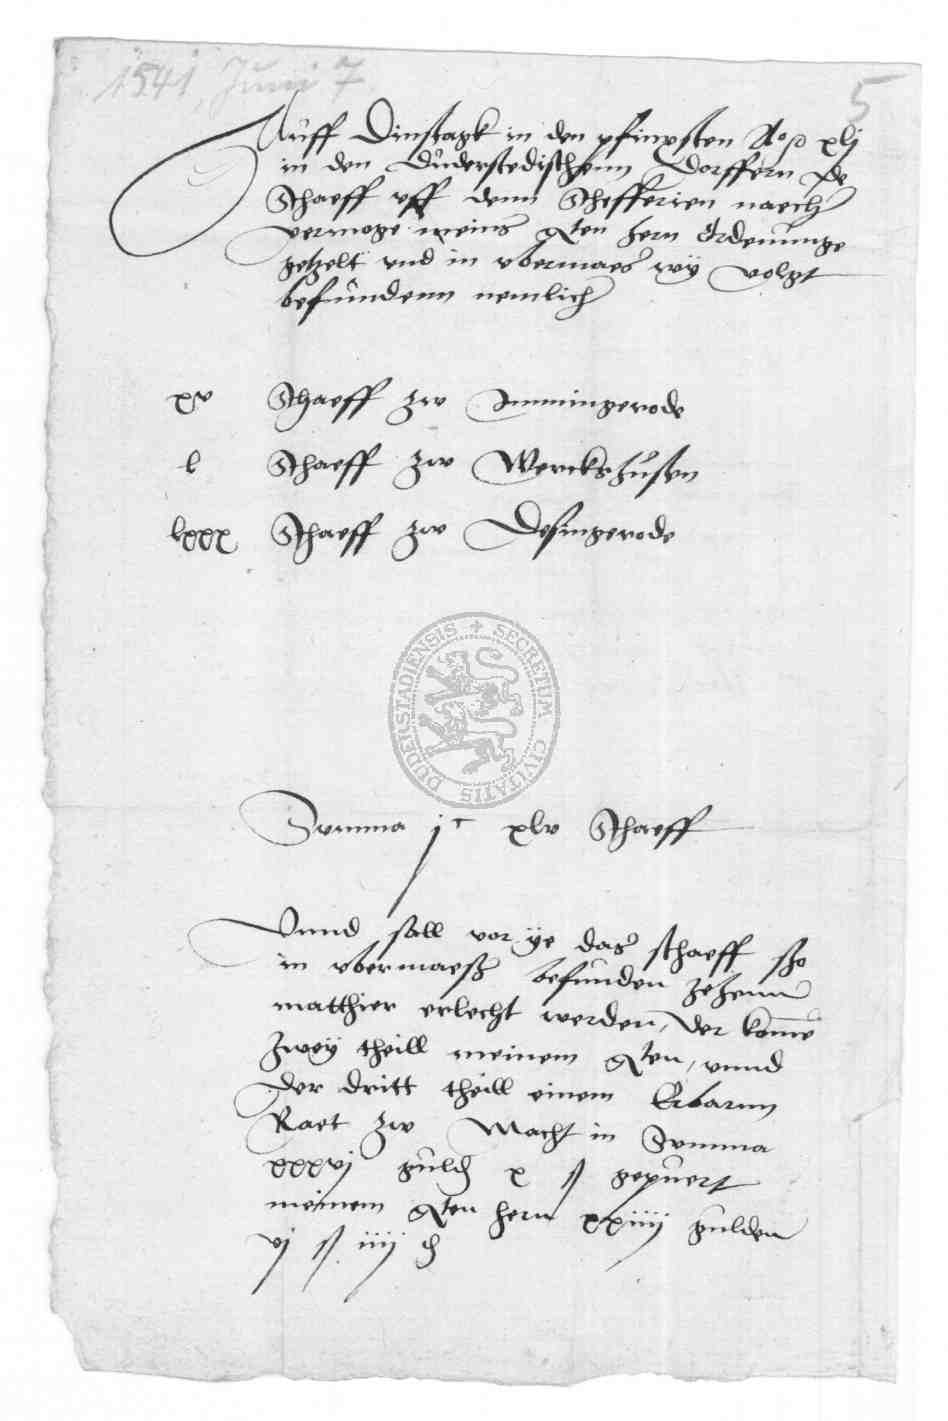 1541, Juni 7
5
Auff Dinstagk in den pfinxsten Ao xlj
in den Duderstedischenn Dorffern de
Schaeff uff denn Schefferien naech
vermoge meins gten hern Ordenunge
getzelt und in ubermaes wÿ volgt
befundenn nemlich
xv Schaeff zw Immingerode
l Schaeff zw Werckshusen
lxxx Schaeff zw Desingerode
SECRETUM CIVITATIS DUDERSTADIENSIS
Summa jc xlv Schaeff
Vnnd sall vor ÿe das schaeff sho
in ubermaeß befunden zehenn
matthier erlecht werden, der kome
zweÿ theill meinem gten, unnd
der dritt theill einem Erbarnn
Raet zw Macht in Summa
xxxvj guld x ß gepuert
meinem gten hern xxiiij gulden
vj ß iiij d